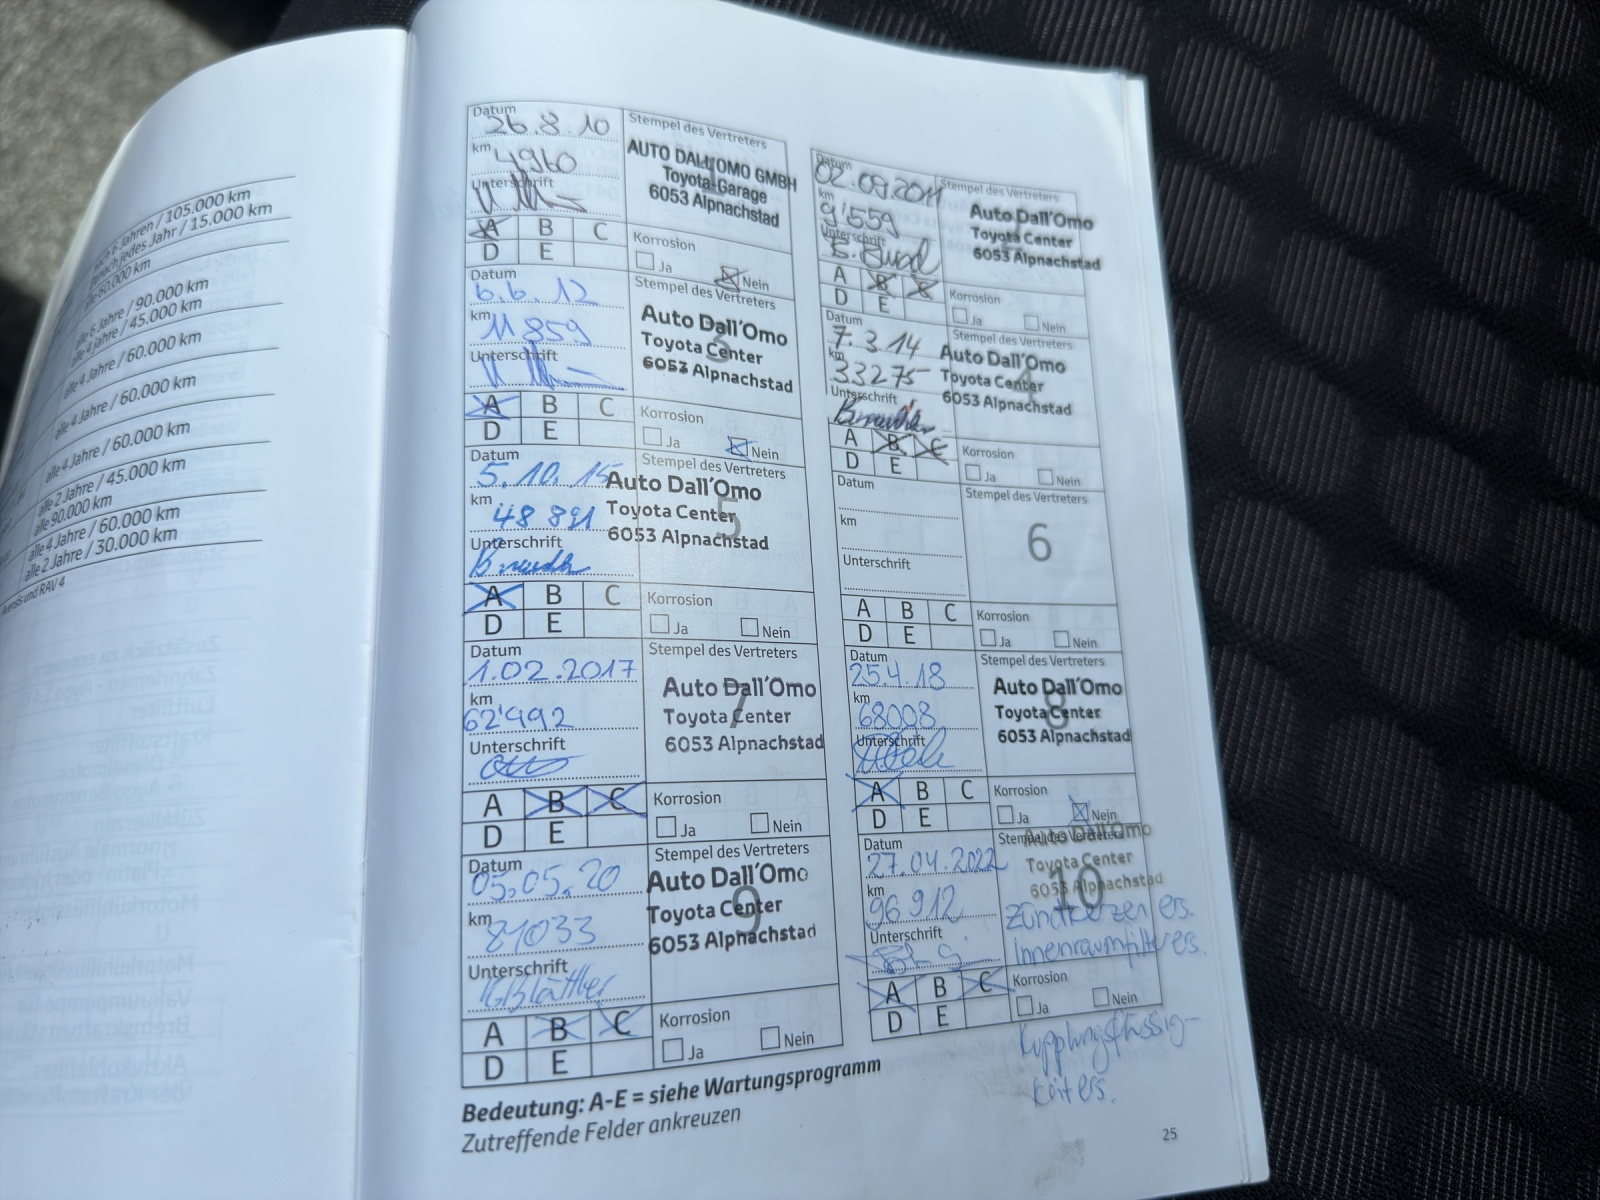 nach 6 Jahren / 105.000 km
danach jedes Jahr / 15.000 km
alle 60.000 km
alle 6 Jahre / 90.000 km
alle 4 Jahre / 45.000 km
alle 4 Jahre / 60.000 km
alle 4 Jahre / 60.000 km
alle 4 Jahre / 60.000 km
alle 2 Jahre / 45.000 km
alle 90.000 km
alle 4 Jahre / 60.000 km
alle 2 Jahre / 30.000 km
Avensis und RAV 4
Datum
26.8.10
km
4960
Unterschrift
Stempel des Vertreters
AUTO DALL'OMO GMBH
Toyota-Garage
6053 Alpnachstad
A B C
D E
Korrosion
Ja Nein
Datum
02.09.2011
km
9'559
Unterschrift
Stempel des Vertreters
Auto Dall'Omo
Toyota Center
6053 Alpnachstad
A B C
D E
Korrosion
Ja Nein
Datum
6.6.12
km
11 859
Unterschrift
Stempel des Vertreters
3
Auto Dall'Omo
Toyota Center
6053 Alpnachstad
A B C
D E
Korrosion
Ja Nein
Datum
7.3.14
km
33275
Unterschrift
Stempel des Vertreters
4
Auto Dall'Omo
Toyota Center
6053 Alpnachstad
A B C
D E
Korrosion
Ja Nein
Datum
5.10.15
km
48 891
Unterschrift
Stempel des Vertreters
5
Auto Dall'Omo
Toyota Center
6053 Alpnachstad
A B C
D E
Korrosion
Ja Nein
Datum
km
Unterschrift
Stempel des Vertreters
6
A B C
D E
Korrosion
Ja Nein
Datum
1.02.2017
km
62'992
Unterschrift
Stempel des Vertreters
7
Auto Dall'Omo
Toyota Center
6053 Alpnachstad
A B C
D E
Korrosion
Ja Nein
Datum
25.4.18
km
68008
Unterschrift
Stempel des Vertreters
8
Auto Dall'Omo
Toyota Center
6053 Alpnachstad
A B C
D E
Korrosion
Ja Nein
Datum
05.05.20
km
81033
Unterschrift
Stempel des Vertreters
9
Auto Dall'Omo
Toyota Center
6053 Alpnachstad
A B C
D E
Korrosion
Ja Nein
Datum
27.04.2022
km
96 912
Unterschrift
Stempel des Vertreters
10
Auto Dall'Omo
Toyota Center
6053 Alpnachstad
Zündkerzen ers.
Innenraumfilter ers.
A B C
D E
Korrosion
Ja Nein
Kupplungsflüssig-
keit ers.
Bedeutung: A-E = siehe Wartungsprogramm
Zutreffende Felder ankreuzen
25